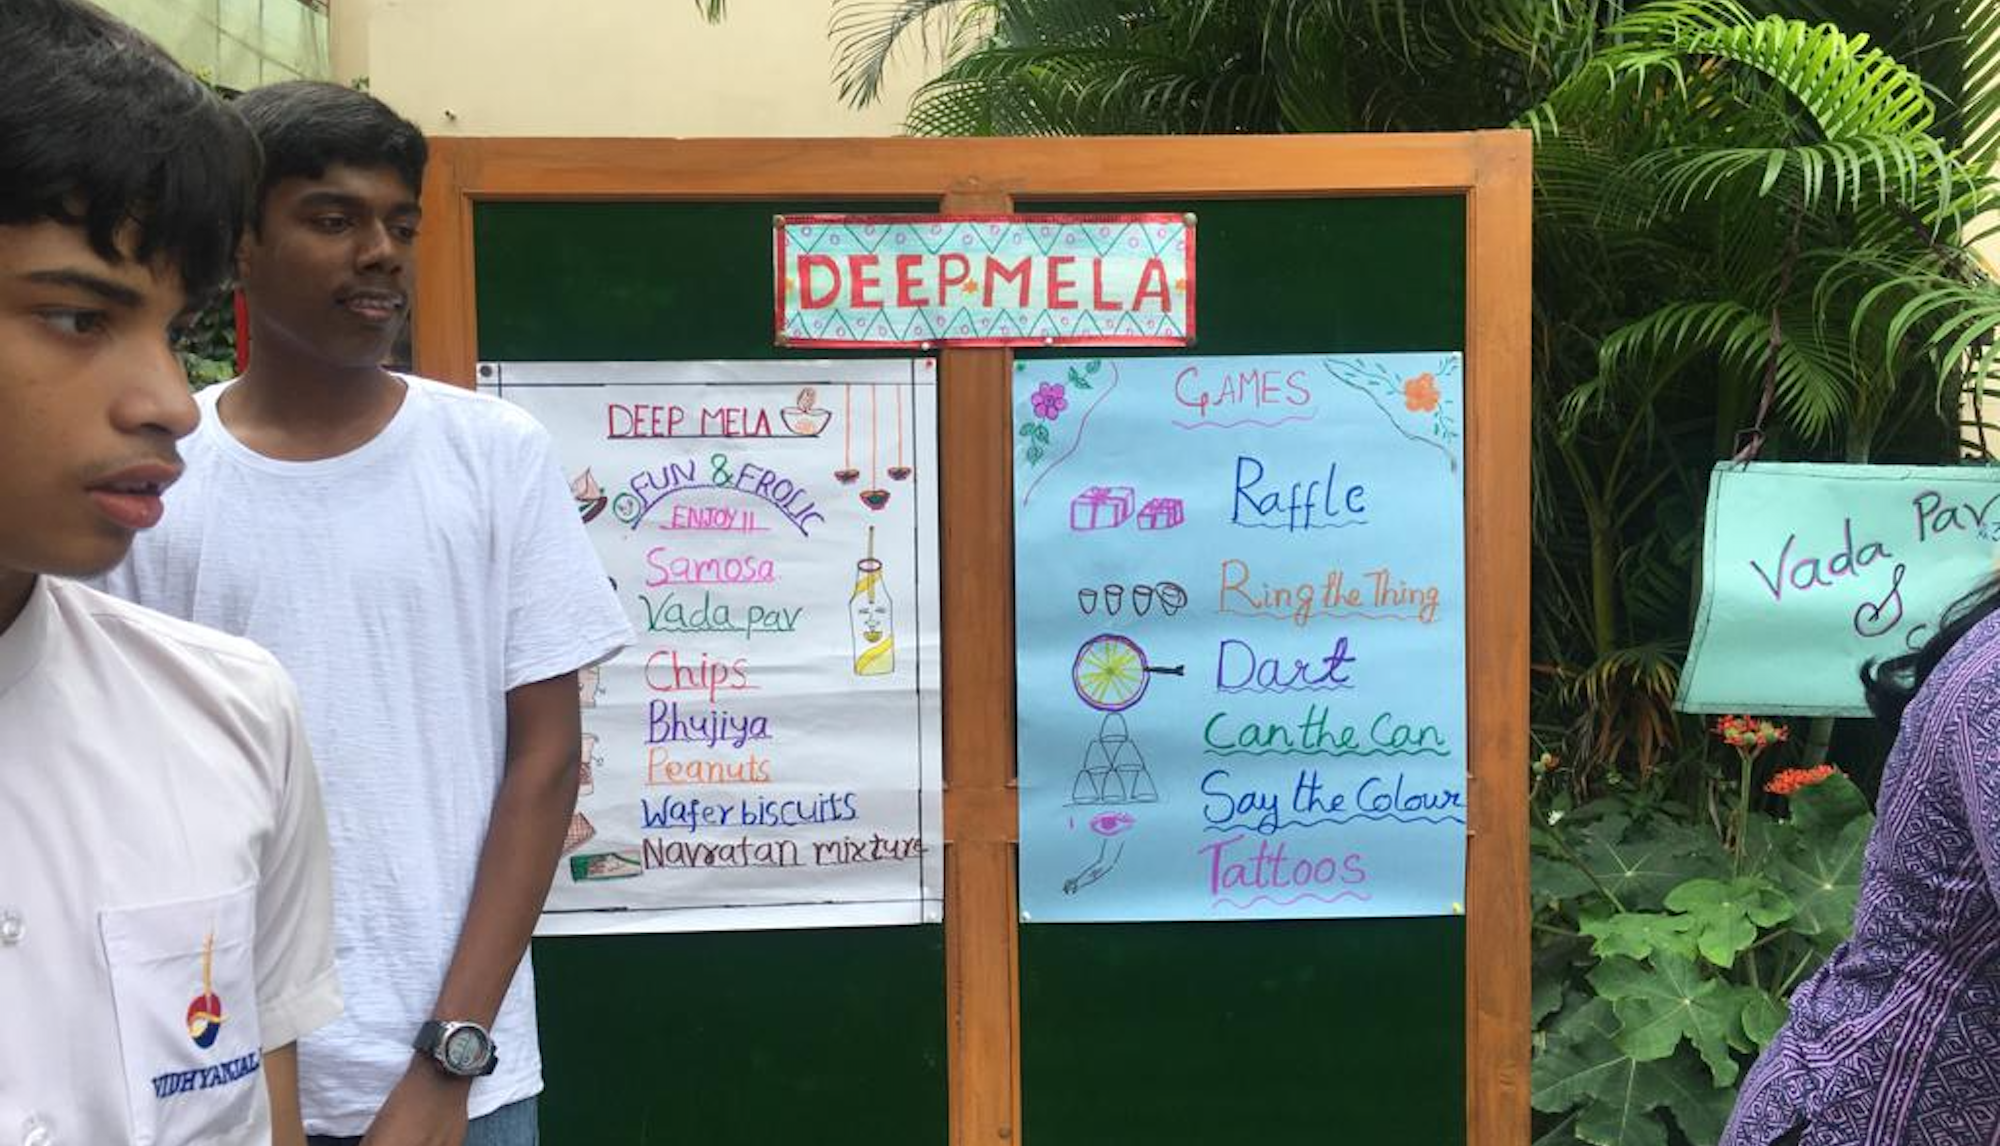 DEEP MELA
DEEP MELA
FUN & FROLIC
ENJOY!!
Samosa
Vada pav
Chips
Bhujiya
Peanuts
Wafer biscuits
Navratan mixture
GAMES
Raffle
Ring the Thing
Dart
Can the Can
Say the Colour
Tattoos
Vada Pav
VIDHYANJALI